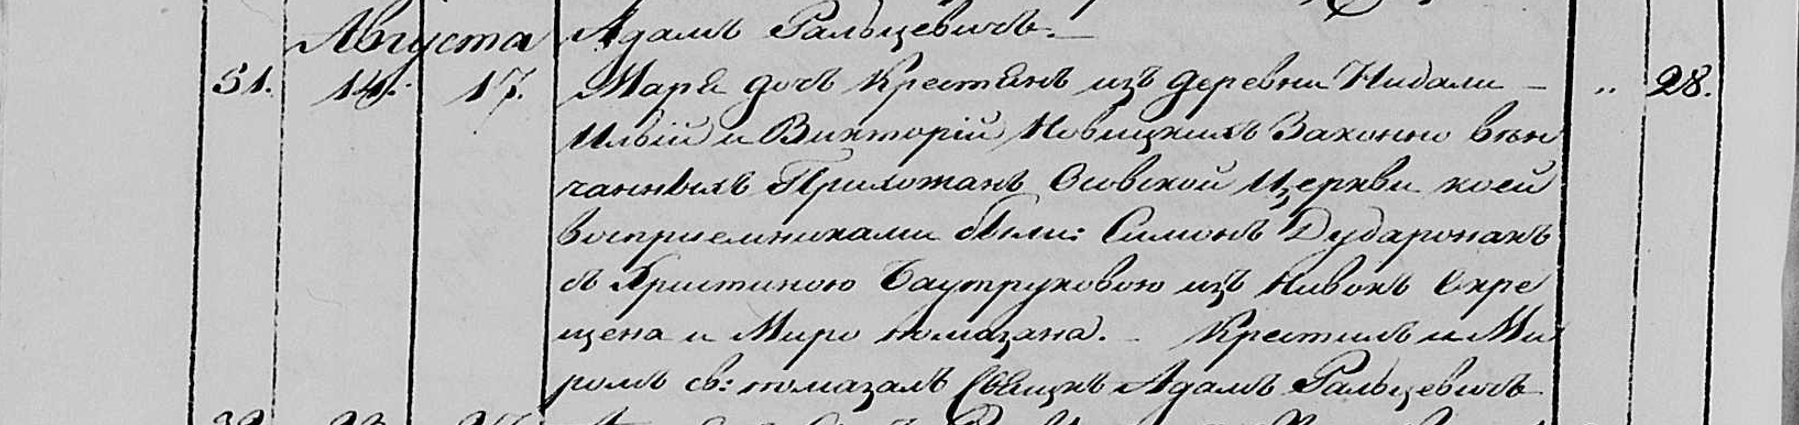 Августа Адамъ Ральцевичъ. —
51. 14. 17. Марѣя дочь Крестѣянъ изъ деревни Нидали — „ 28.
Илѣи и Викторіи Новицкихъ Законно вѣн
чанныхъ Прихожанъ Осовской Церкви коей
восприемниками были: Симонъ Дударонакъ
съ Христиною Баутруковою изъ Нивокъ Окре
щена и Миро помазана. — Крестилъ и Ми
ромъ св: помазалъ Свящнъ Адамъ Ральцевичъ